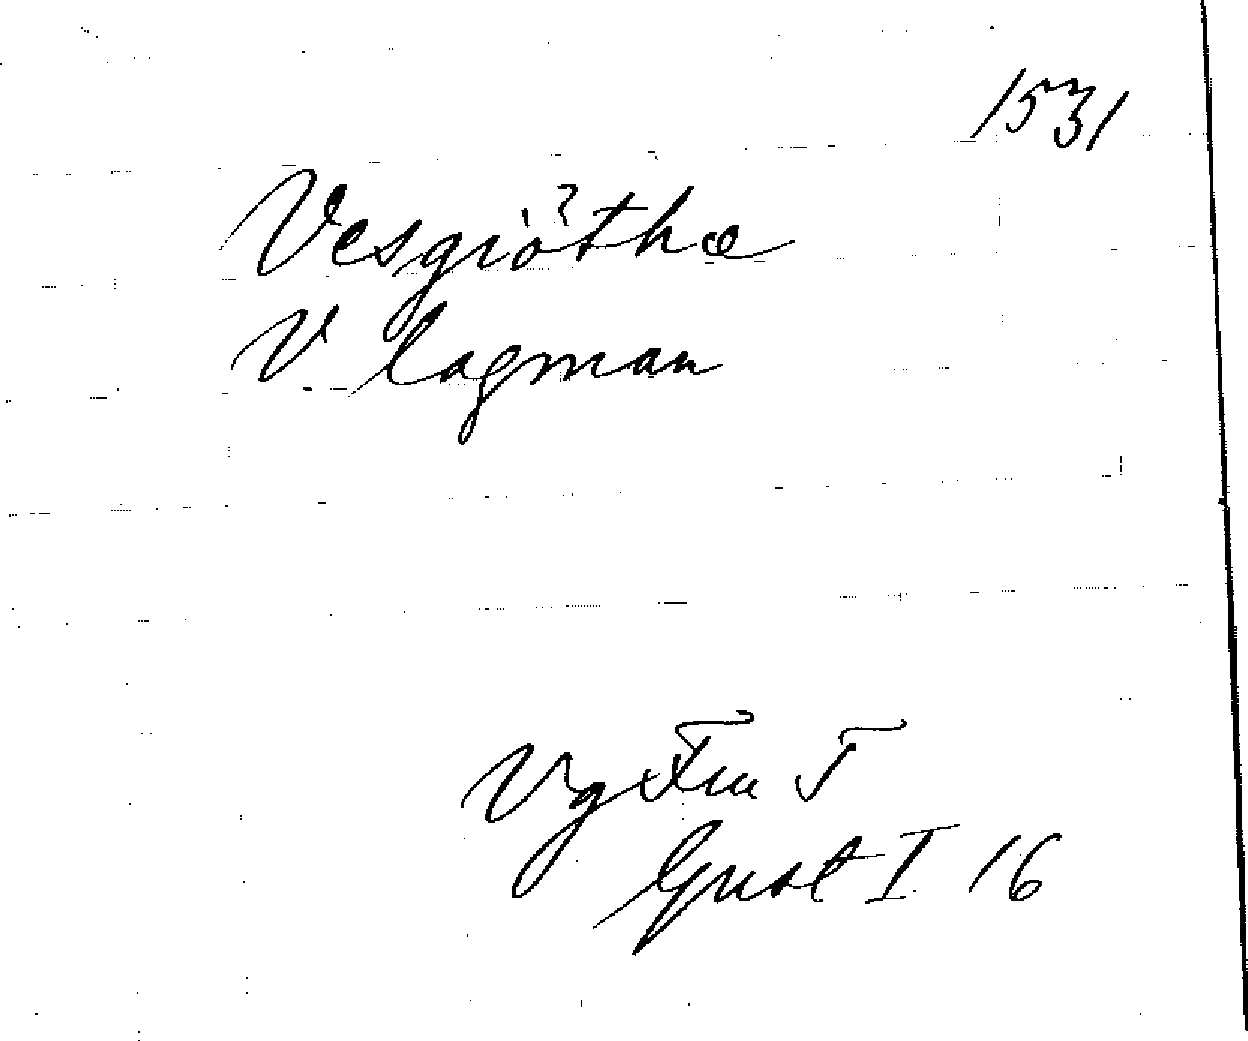 1531
Vesgiötha
V. lagman
Vg Fru T
Gust I 16